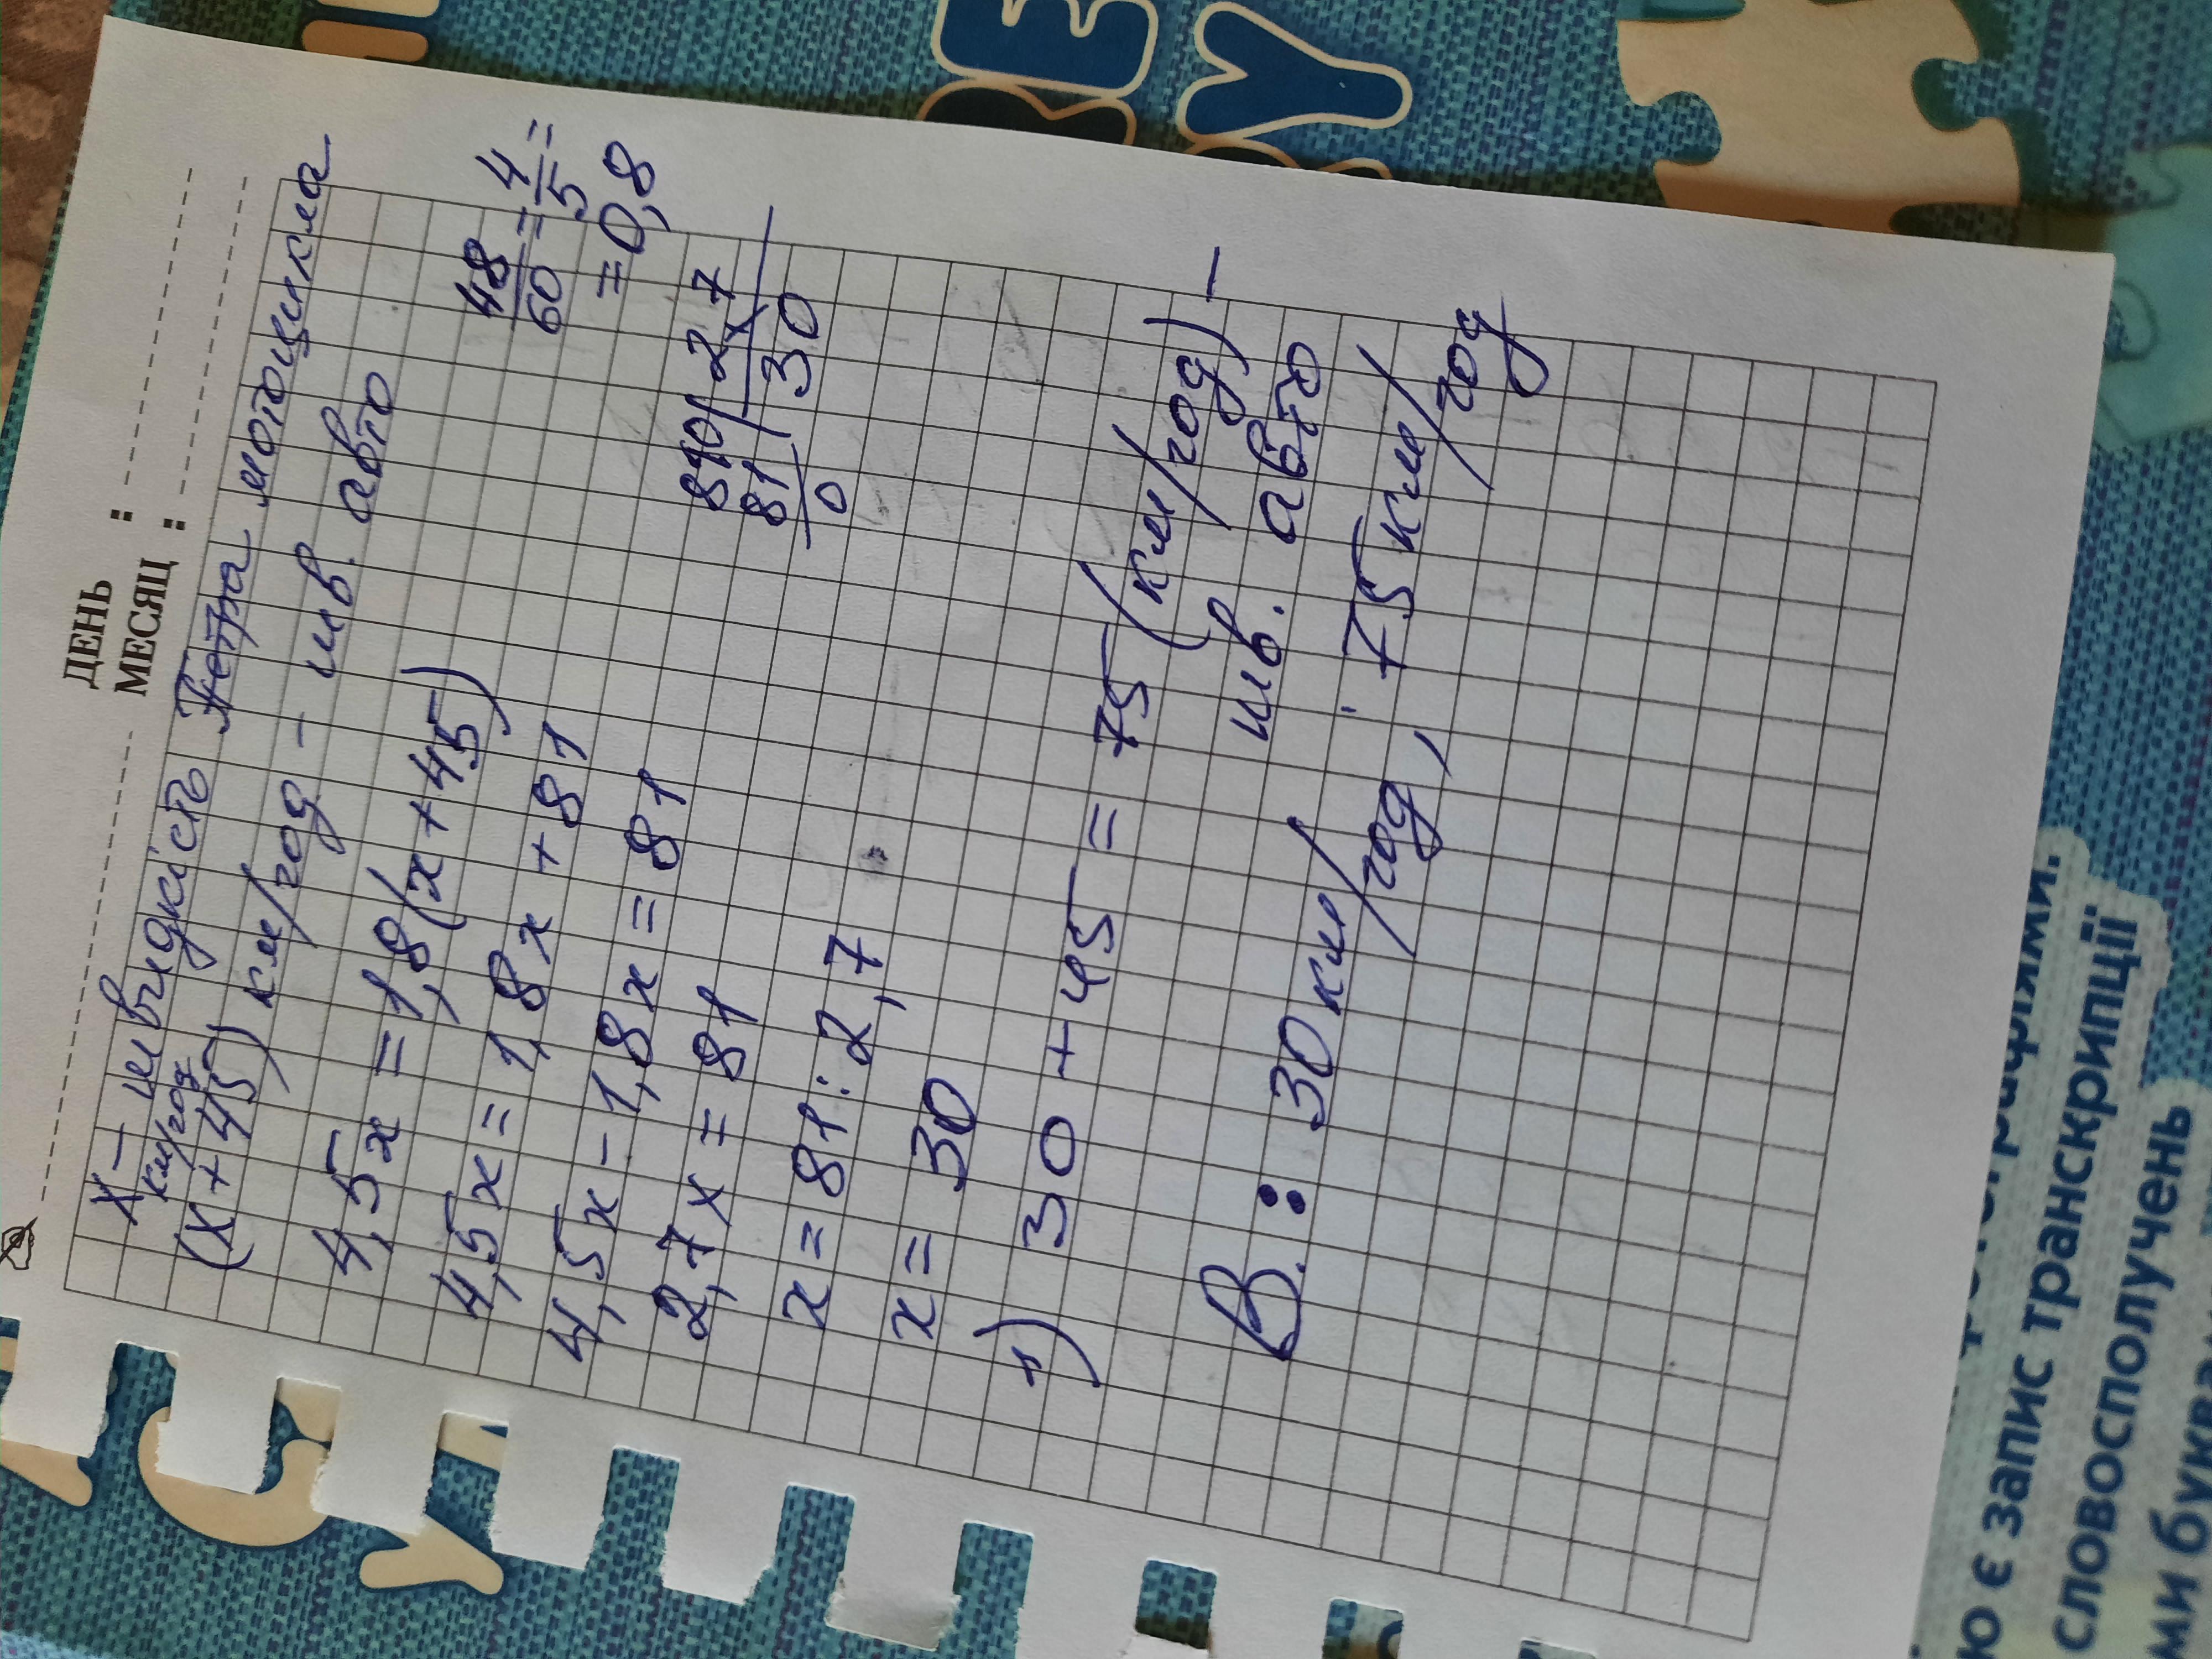 ДЕНЬ :
МЕСЯЦ :
х – швидкість Петра мотоцикла
км/год
(х + 45) км/год – шв. авто
4,5х = 1,8(х + 45)
48/60 = 4/5 =
= 0,8
4,5х = 1,8х + 81
4,5х – 1,8х = 81
2,7х = 81
810 | 27
81 | 30
0
х = 81 : 2,7
х = 30
1) 30 + 45 = 75 (км/год) –
шв. авто
В.: 30 км/год, 75 км/год
RE
Y
ю є запис транскрипції
словосполучень
ми буква